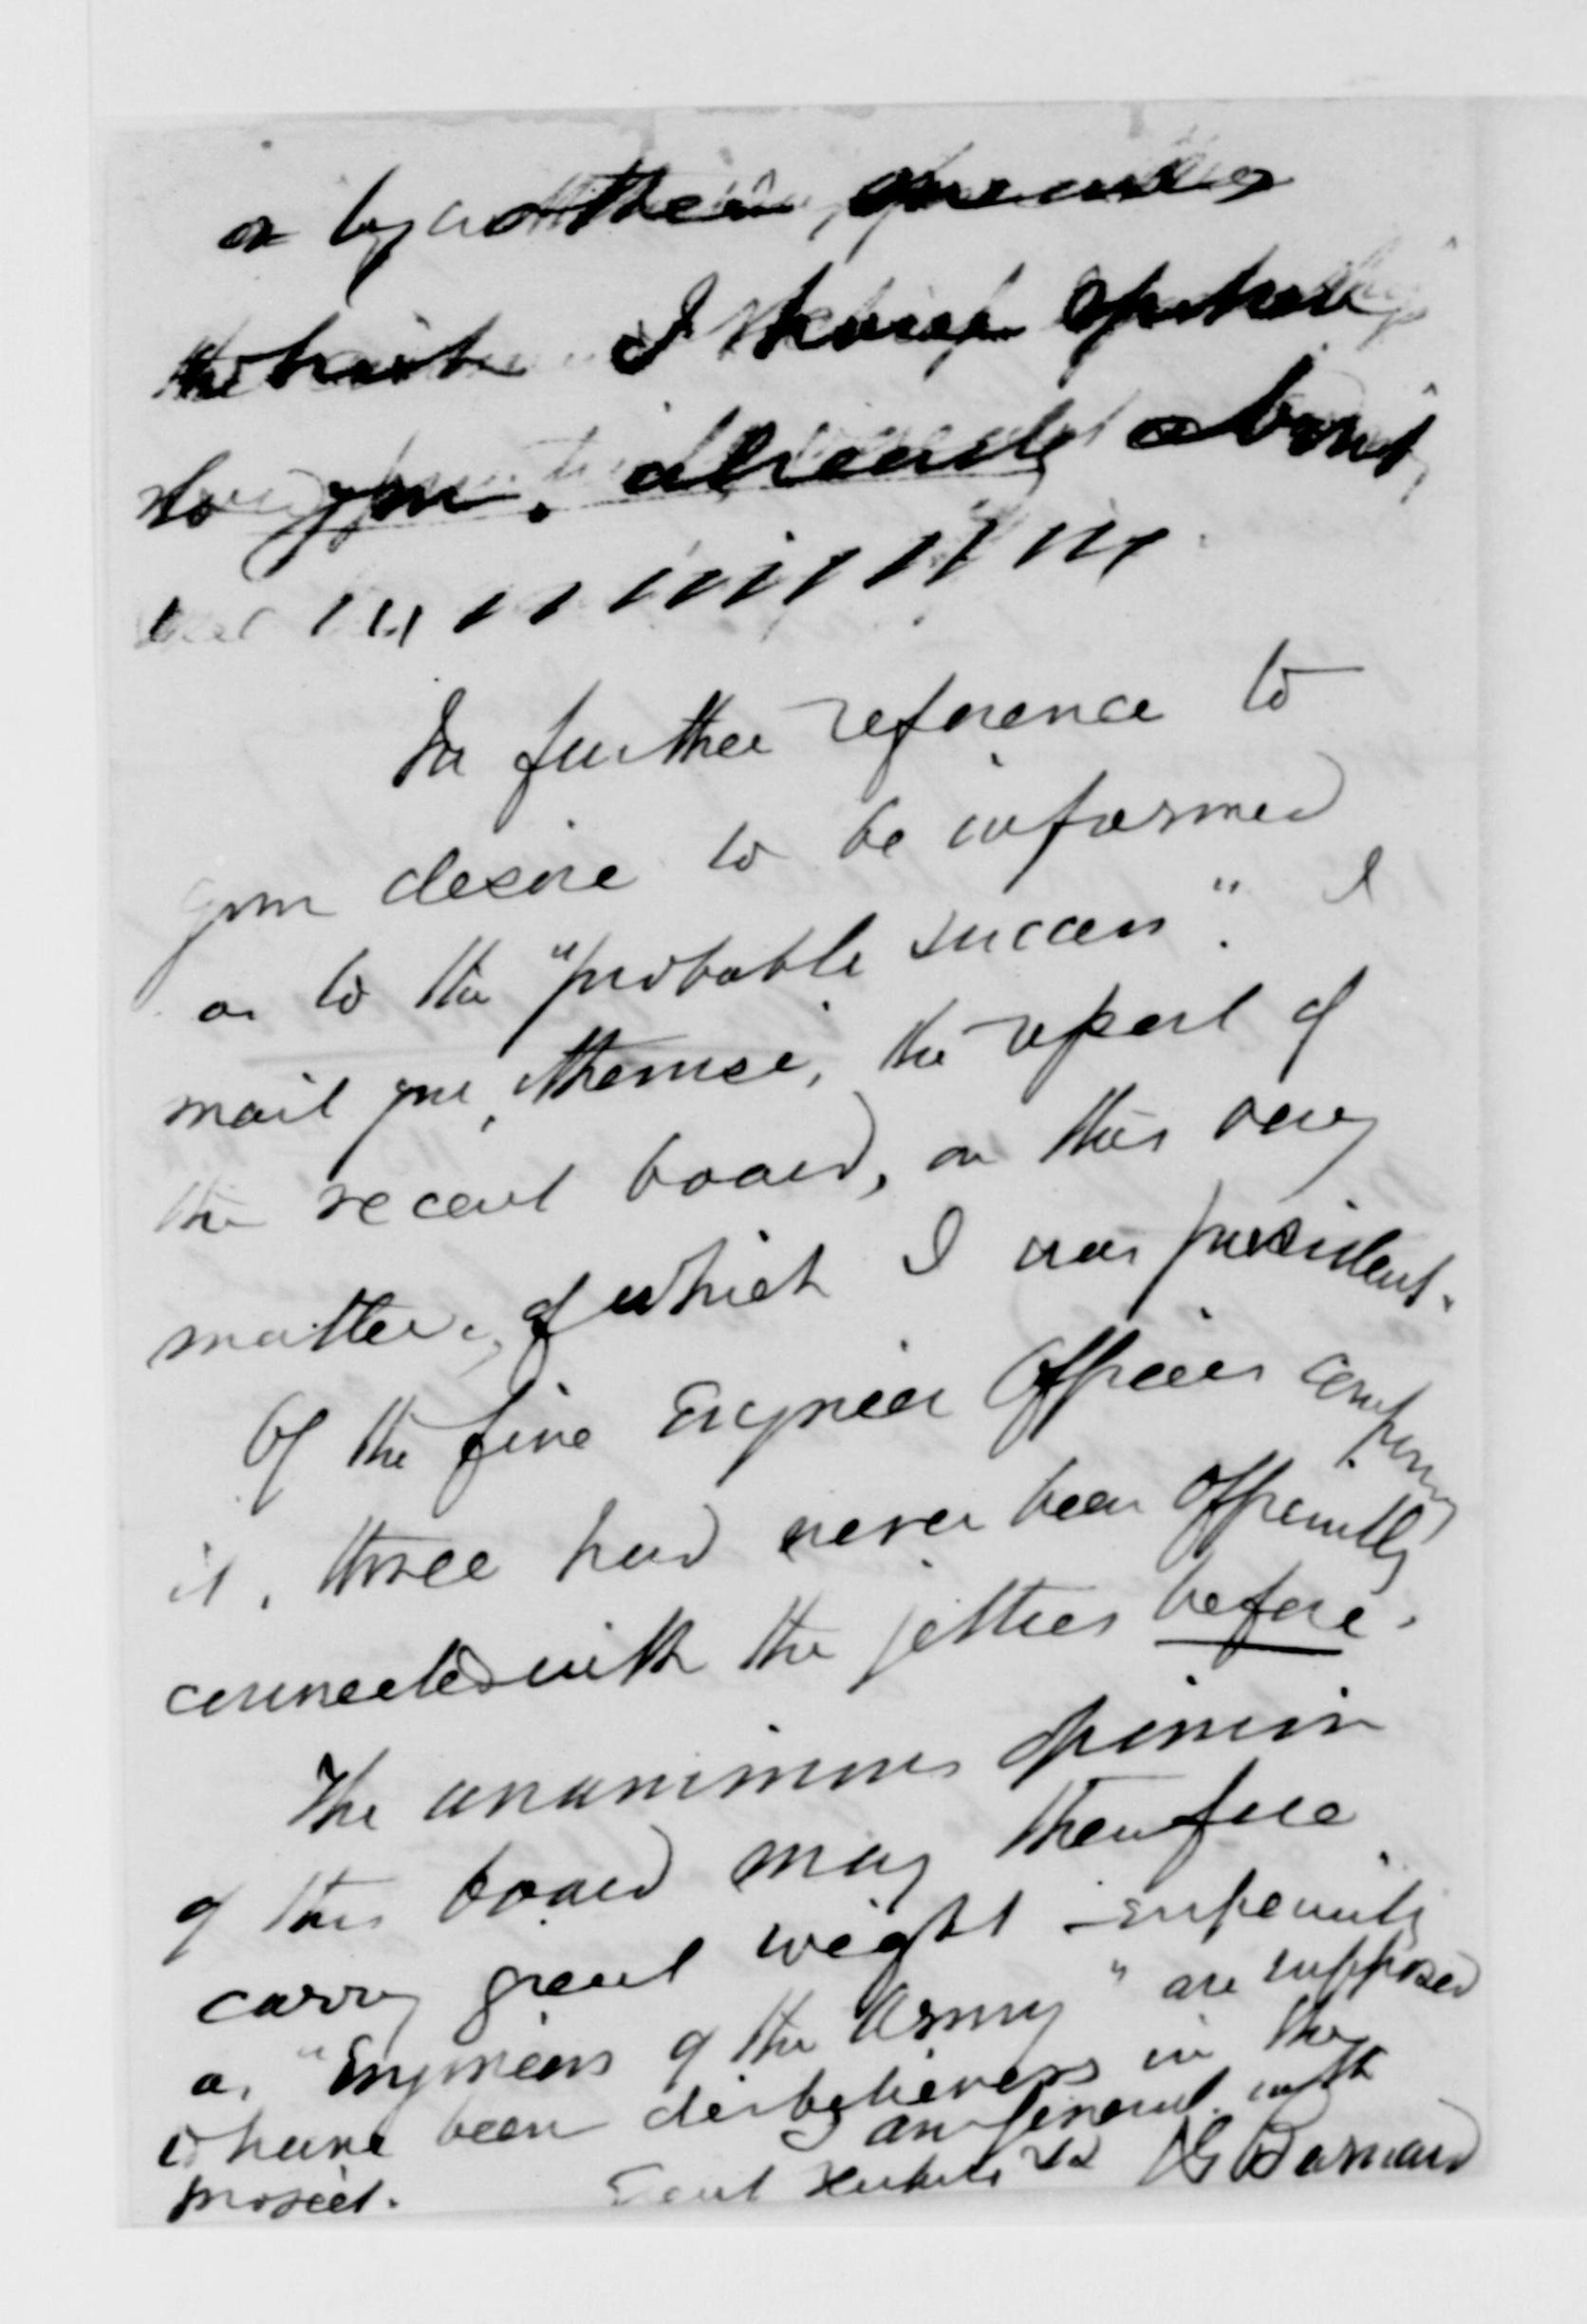 or by another, 
the I think spoken
to you, already about,
In further reference to
your desire to be informed
as to the "probable success". I
mail you, the report of
the recent board, on this very
matter, of which I was president.
Of the five Engineer Officers composing
it, three had never been officially
connected with the jetties before.
The unanimous opinion
of this board may therefore
carry great weight especially
as "Engineers of the Army" are supposed
to have been disbelievers in the
project. I am General with
Great JG Barnard